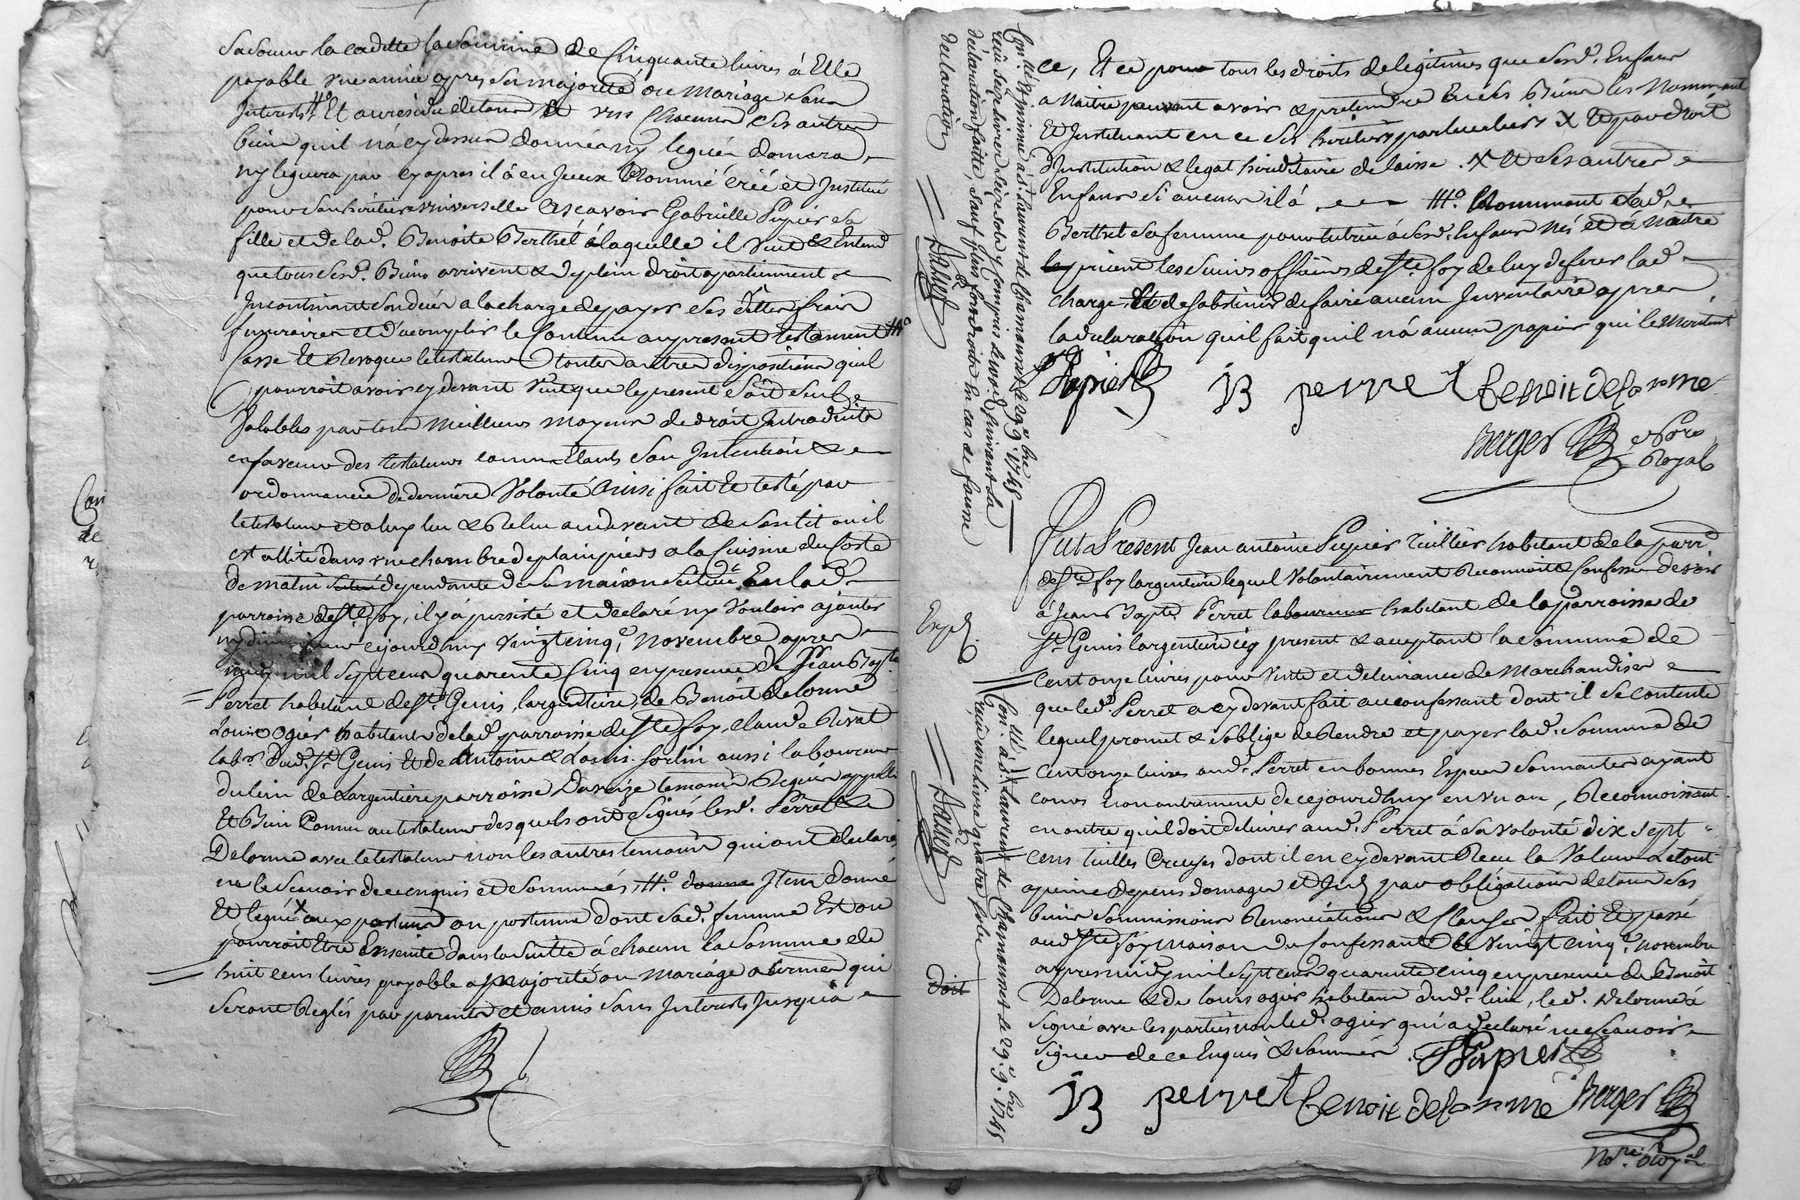 sa soeur la cadette la somme de Cinquante livres à Elle
payable une année apres sa majorité ou mariage sans
Interests Et au residu de tous et uns chacuns ses autres
biens qu'il n'a cy dessus donnés ny legués donnera
ny leguera par cy apres il a en Iceux Nommé créé et Institué
pour son heritiere universelle ascavoir Gabrielle Pupier sa
fille et de lad. Benoite Berthet a laquelle il veut & Entend
que tous sesd. Biens arrivent & de plein droit apartiennent
Incontinent son deces a la charge de payer ses dettes frais
funeraires et d'acomplir le Contenu au present testament
Casse Et Revoque le testateur toutes autres dispositions quil
pourroit avoir cy devant veut que le present soit seul
Valables par tous meilleurs moyens de droit Introduits
en faveur des testateurs comm'étant son Intention &
ordonnance de derniere Volonté Ainsi fait Et testé par
le testateur et a luy lu & Relu au devant de son lit où il
est allité dans une chambre de plain pieds a la Cuisine du Coté
de matin dependante de sa maison scituée En lad.
parroisse de Ste foy, il y a persisté et declaré ny vouloir ajouter
ny diminuer cejourdhuy vingt cinq. Novembre apres
midy mil sept cens quarente Cinq en presence de Jean Bapte
Perret habitant de St. Genis largentiere, de Benoit delorme
Louis ogier habitants de lad. parroisse de Ste foy, claude Rivat
labr. Dud. St. Genis Et de Antoine & Louis fortin aussi laboureurs
du lieu de Largentiere parroisse Daveize temoins Requis appellés
Et Bien Connu au testateur desquels ont Signés lesd. Perret &
Delorme avec le testateur non les autres temoins qui ont declaré
ne le Scavoir de ce enquis et Sommés, donne Item donne
Et legue aux postume ou postumes dont sad. femme Est ou
pourroit Etre Enceinte dans la suitte à chacun la Somme de
huit cens livres payable a Majorité ou Mariage a termes qui
Seront Reglés par parents et amis Sans Interests Jusqu'à
ce, Et ce pour tous les droits de legitimes que sesd. Enfans
a Naitre peuvent avoir & pretendre En ses Biens les Nommant
Et Instituant en ce ses heritiers particuliers X Et par droit
d'Institution & legat hereditaire delaisse. X Et ses autres
Enfans si aucun il a. Nommant lad.
Berthet sa femme pour tutrice à sesd. Enfans Nés et à Naitre
prient les Sieurs officiers de Ste foy de luy deferer lad.
charge Et de Sabstenir de faire aucun Inventaire apres
la declaration qu'il fait qu'il n'a aucun papier qui le meritent
Pupier JB perret benoit delorme
Berger Nore
Royal
Con. Et insinué à St. Laurent de Chamousset le 29. 9.bre 1745
reçu six livres six sols y compris le suivant la
declaration faitte, sauf plus fort droits En cas de fausse
declaration
Expd.
Fut Present Jean antoine Pupier Tuillier habitant de la parr.
de Ste foy largentiere lequel Volontairement Reconnoit & Confesse devoir
à Jean Bapte Perret laboureur habitant de la parroisse de
St. Genis largentiere icy present & acceptant la Somme de
Cent onze livres pour Vente et delivrance de Marchandises
que led. Perret a cy devant fait au confessant dont il se contente
lequel promet & soblige de Rendre et payer lad. Somme de
Cent onze livres aud. Perret en bonnes Especes Sonnantes ayant
cours & non autrement de cejourdhuy en un an, Reconnoissant
en outre qu'il doit delivrer aud. Perret à sa volonté dix sept
cens tuilles Creuses dont il en cy devant Receu la Valeur Le tout
a peine de depens domages et Ints par obligation de tous ses
biens Soumissions Renonciations & Clauses fait Et passé
aud. Ste foy maison du Confessant le vingt cinq. Novembre
apres midy mil sept cens quarente cinq en presence de Benoit
Delorme & de Louis ogier habitans dud. lieu, led. Delorme à
Signé avec les parties non led. ogier qui a declaré ne scavoir
Signer de ce Enquis & Sommés.
Pupier
JB perret benoit delorme Berger
Nore. Royal
Con. à St. Laurent de Chamousset le 29. 9.bre 1745
Reçu une livre quatre sols
doit